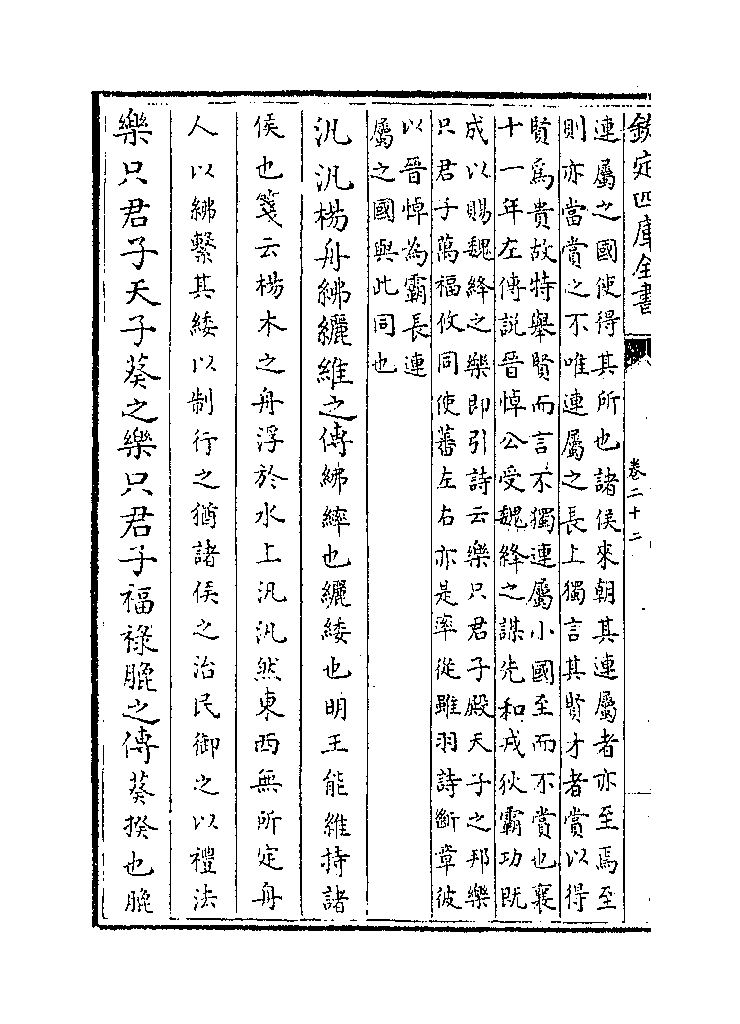 欽定四庫全書
卷二十二
連屬之國使得其所也諸侯來朝其連屬者亦至焉至
則亦當賞之不唯連屬之長上獨言其賢才者賞以得
賢為貴故特舉賢而言不獨連屬小國至而不賞也襄
十一年左傳説晉悼公受魏絳之謀先和戎狄霸功既
成以賜魏絳之樂即引詩云樂只君子殿天子之邦樂
只君子萬福攸同使蕃左右亦是率從雖羽詩斷章彼
以晉悼為霸長連
屬之國與此同也
汎汎楊舟紼纚維之傳紼繂也纚緌也明王能維持諸
侯也箋云楊木之舟浮於水上汎汎然東西無所定舟
人以紼繫其緌以制行之猶諸侯之治民御之以禮法
樂只君子天子葵之樂只君子福祿膍之傳葵揆也膍